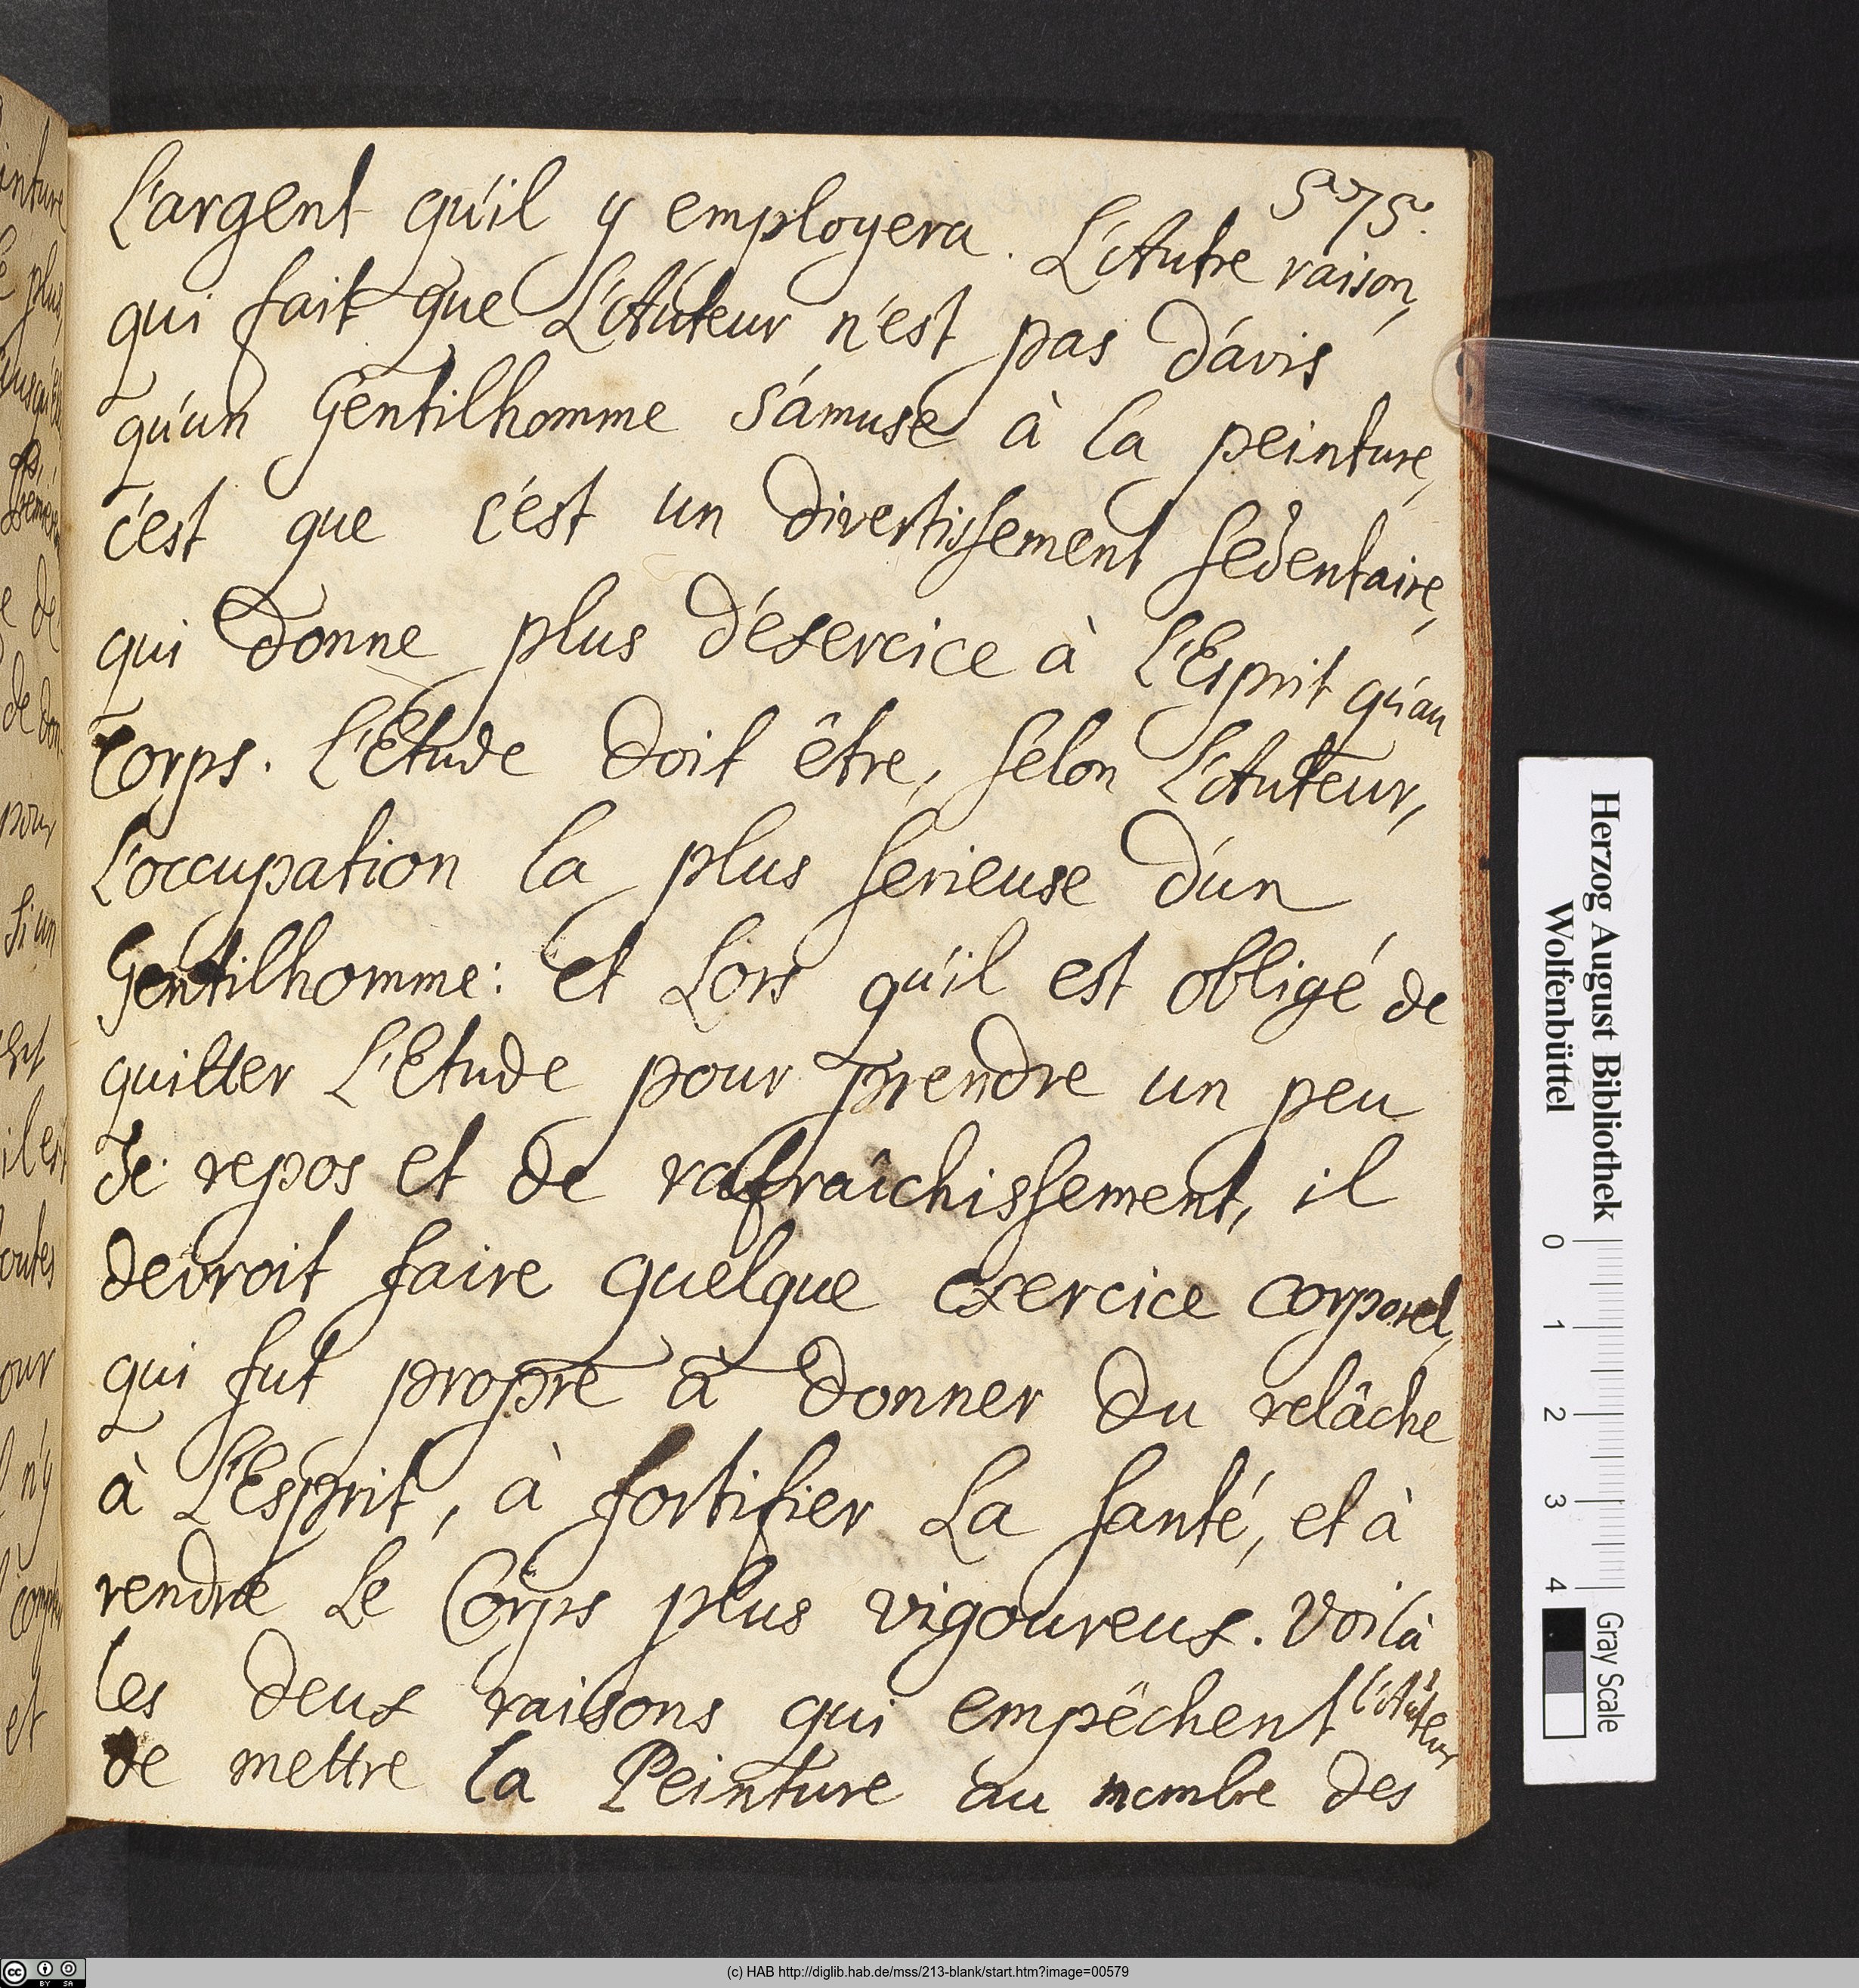 575.
L'argent qu'il y employera. L'Autre raison,
qui fait que L'Auteur n'est pas d'avis
qu'un Gentilhomme s'amuse à la peinture,
c'est que c'est un divertissement sedentaire,
qui donne plus d'exercice à L'Esprit qu'au
Corps. L'Etude doit être, selon L'Auteur,
L'occupation la plus serieuse d'un
Gentilhomme: et Lors qu'il est obligé de
quitter L'Etude pour prendre un peu
de repos et de rafraîchissement, il
devroit faire quelque exercice corporel,
qui fut propre à donner du relâche
à L'Esprit, à fortifier La santé, et à
rendre Le Corps plus vigoureux. Voilà
les deux raisons qui empêchent l'Auteur
de mettre la Peinture au nombre des
Herzog August Bibliothek
Wolfenbüttel
0 1 2 3 4
Gray Scale
(c) HAB http://diglib.hab.de/mss/213-blank/start.htm?image=00579